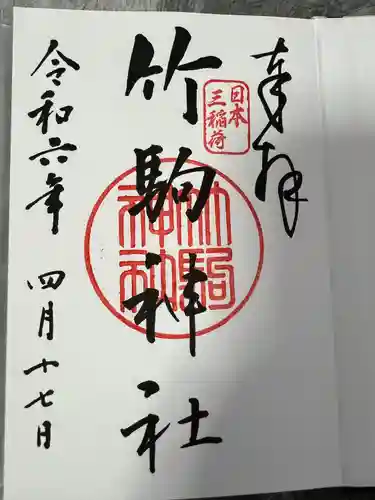 奉拝
日本
三稲荷
竹駒神社
竹駒
神社
令和六年 四月十七日